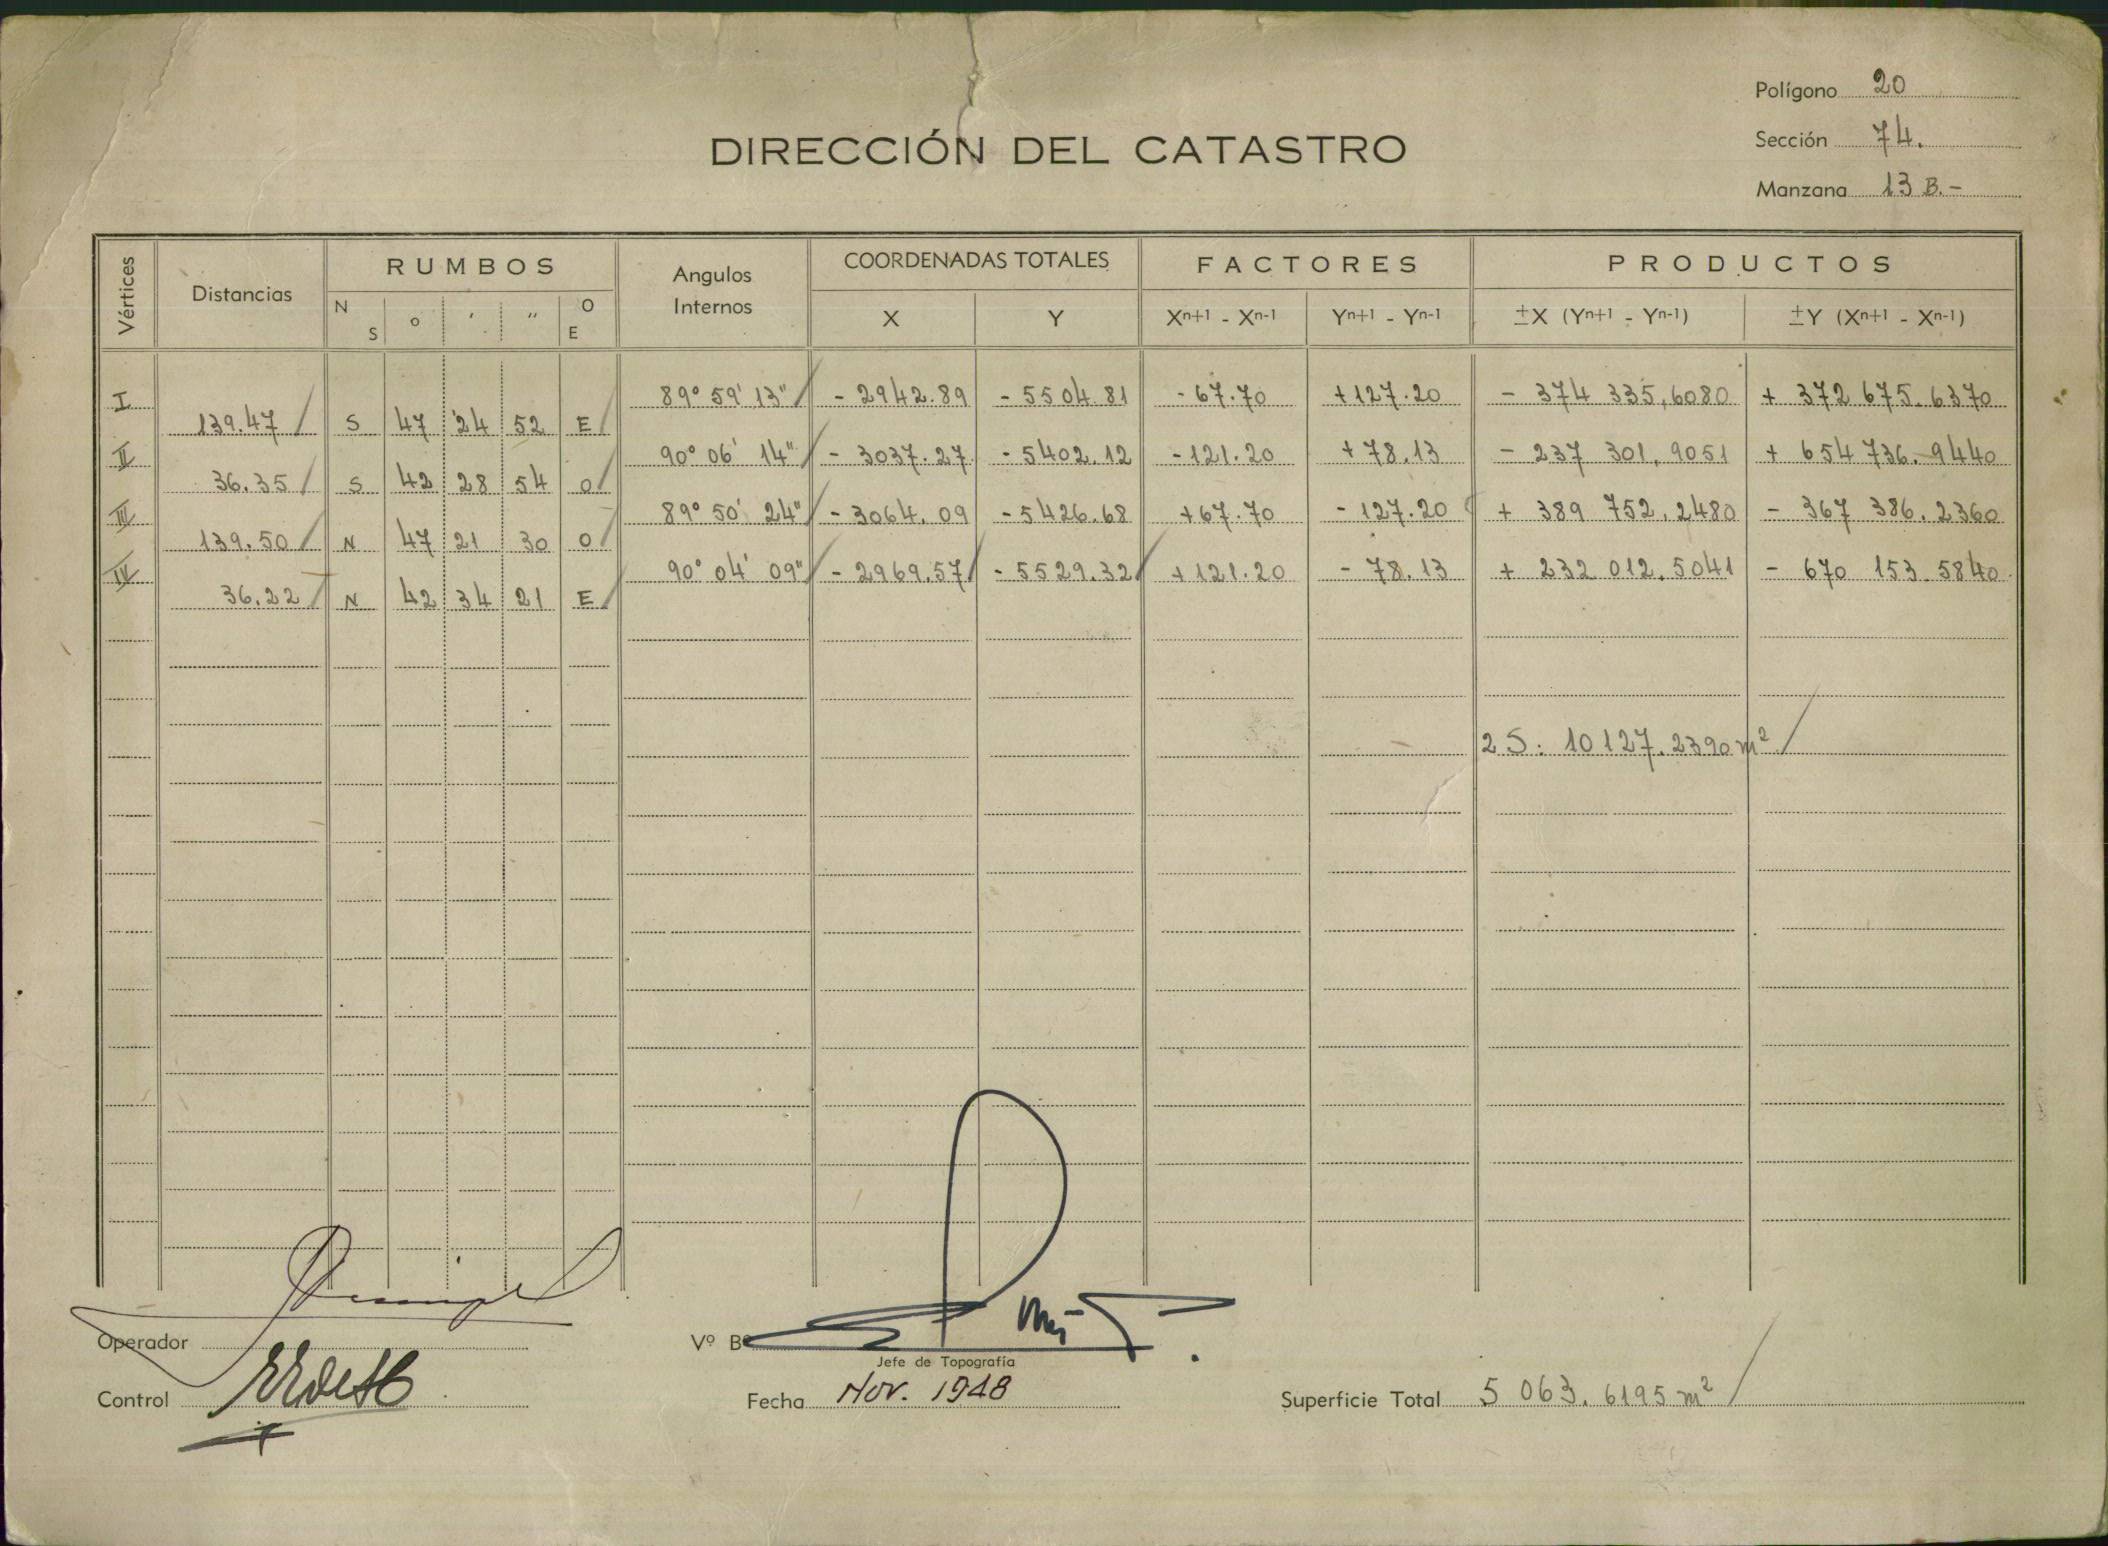 Polígono 20
DIRECCIÓN DEL CATASTRO
Sección 74.
Manzana 13 B.-
Vértices Distancias RUMBOS Angulos Internos COORDENADAS TOTALES FACTORES PRODUCTOS
N S ° ' " O E X Y Xn+1 - Xn-1 Yn+1 - Yn-1 ±X (Yn+1 - Yn-1) ±Y (Xn+1 - Xn-1)
I 89° 59' 13" - 2942.89 - 5504.81 - 67.70 +127.20 - 374 335,6080 + 372 675.6370
139.47 S 47 24 52 E
II 90° 06' 14" - 3037.27 - 5402.12 -121.20 +78.13 - 237 301,9051 + 654 736.9440
36.35 S 42 28 54 O
III 89° 50' 24" - 3064.09 - 5426.68 +67.70 - 127.20 + 389 752,2480 - 367 386.2360
139.50 N 47 21 30 O
IV 90° 04' 09" - 2969.57 - 5529.32 +121.20 - 78.13 + 232 012.5041 - 670 153.5840
36.22 N 42 34 21 E
2 S: 10 127.2390 m²
Operador
Vº Bº
Jefe de Topografía
Control
Fecha Nov. 1948
Superficie Total 5 063.6195 m²